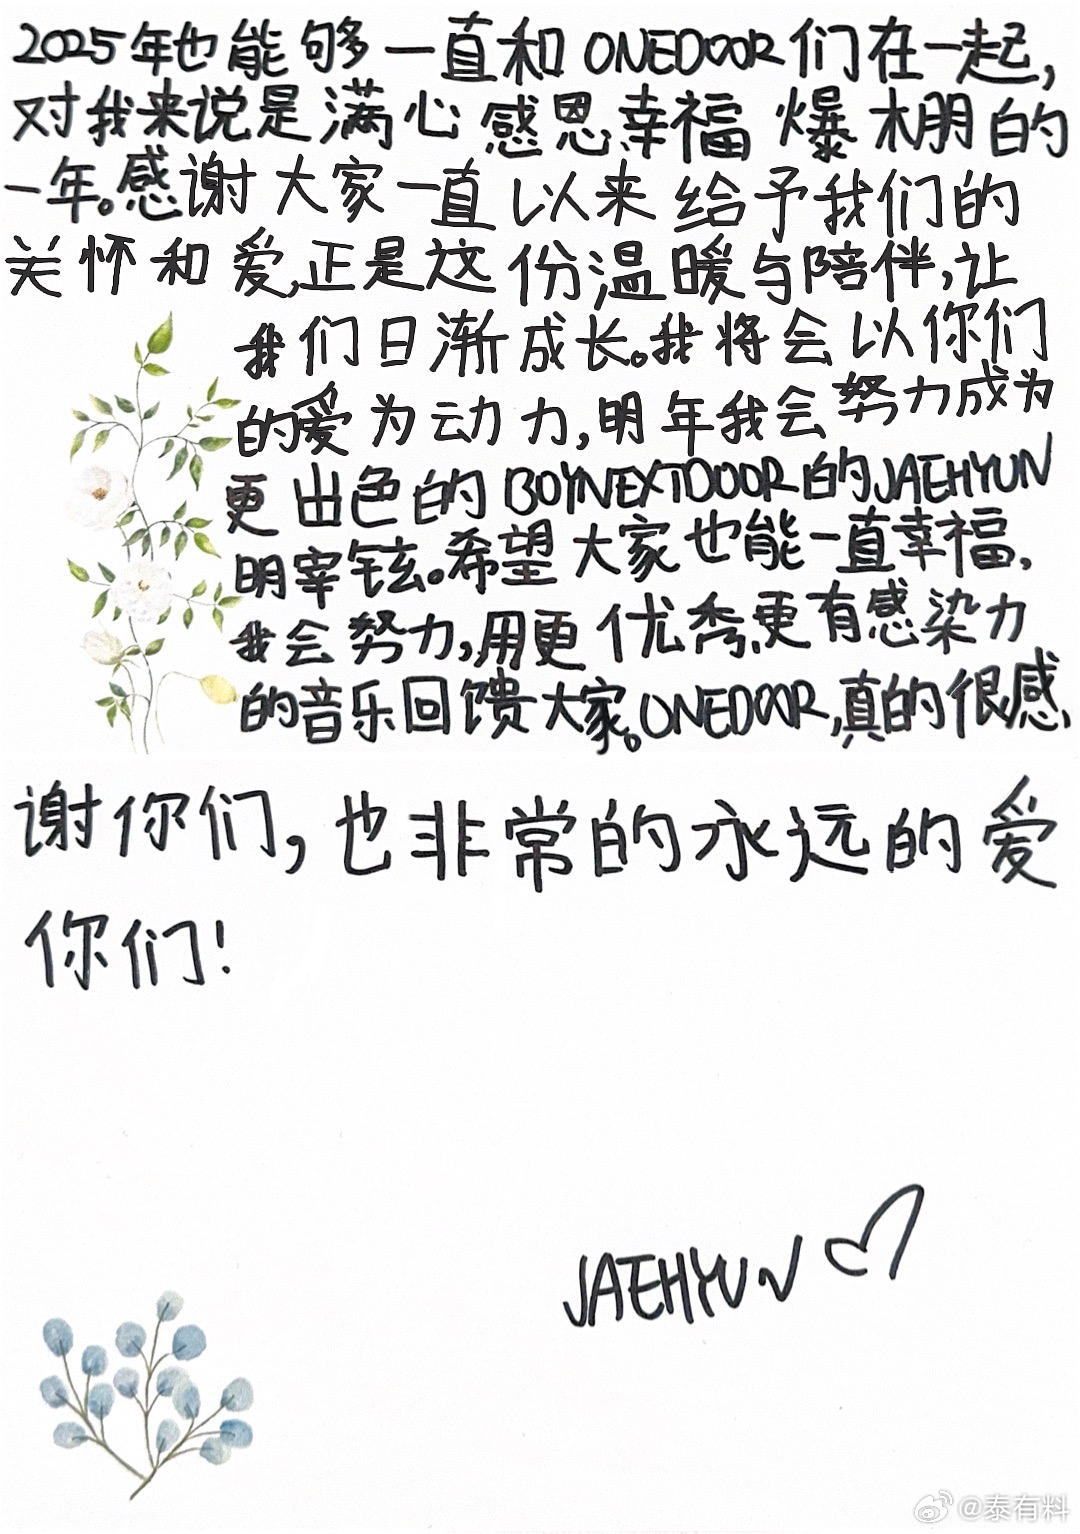 2025年也能够一直和ONEDOOR们在一起,
对我来说是满心感恩,幸福爆棚的
一年。感谢大家一直以来给予我们的
关怀和爱,正是这份温暖与陪伴,让
我们日渐成长。我将会以你们
的爱为动力,明年我会努力成为
更出色的BOYNEXTDOOR的JAEHYUN
明宰铉。希望大家也能一直幸福,
我会努力,用更优秀、更有感染力
的音乐回馈大家。ONEDOOR,真的很感
谢你们,也非常的永远的爱
你们!
JAEHYUN♡
@泰有料